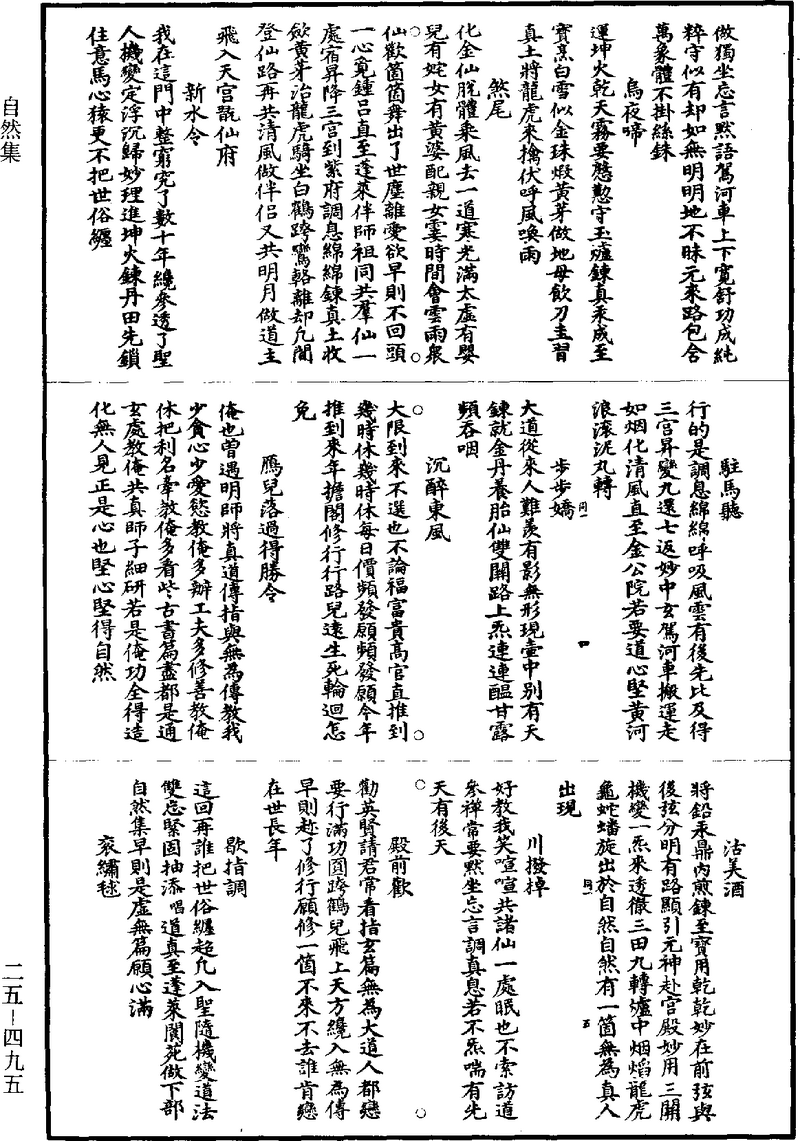 做獨坐忘言默語駕河車上下寬舒功成純
粹守似有却如無明明地不昧元來路包含
萬象體不掛絲銖
烏夜啼
運坤火乾天霧要慇懃守玉爐鍊真汞成至
寶烹白雪似金珠煅黃芽做地母飲刀圭習
真土將龍虎來擒伏呼風喚雨
煞尾
化金仙脫體乘風去一道寒光滿太虛有嬰
兒有姹女有黃婆配親女霎時間會雲雨衆
仙歡箇箇舞出了世塵離愛欲早則不回頭
一心覓鍾呂真至蓬萊伴師祖同共羣仙一
處宿昇降三宮到紫府調息綿綿鍊真土收
飲黃芽治龍虎騎坐白鶴跨鸞輅離却凡閬
登仙路再共清風做伴侶又共明月做道主
飛入天宮翫仙府
新水令
我在這門中整窮究了數十年纔參透了聖
人機變定浮沉歸妙理進坤火鍊丹田先鎖
住意馬心猿更不把世俗纏
駐馬聽
行的是調息綿綿呼吸風雲有後先比及得
三宮昇變九還七返妙中玄駕河車搬運走
如烟化清風直至金公院若要道心堅黃河
浪滾泥丸轉
步步嬌
大道從來人難羨有影無形現壺中別有天
鍊就金丹養胎仙雙關路上炁連連醞甘露
頻吞咽
沉醉東風
大限到來不選也不論福富貴高官直推到
幾時休幾時休每日價頻發願頻發願今年
推到來年擔閣修行行路兒遠生死輪迴怎
免
鴈兒落過得勝令
俺也曾遇明師將真道傳指與無為傳教我
少貪心少愛慾教俺多辦工夫多修善教俺
休把利名牽教俺多看些古書篇盡都是通
玄處教俺共真師子細研若是俺功全得造
化無人見正是心也堅心堅得自然
沽美酒
將鉛汞鼎內煎鍊至寶用乾乾妙在前弦與
後弦分明有路顯引元神赴宮殿妙用三關
機變一炁來透徹三田九轉爐中烟焰龍虎
龜蛇蟠旋出於自然自然有一箇無為真人
出現
川撥掉
好教我笑喧喧共諸仙一處眠也不索訪道
參禪常要默坐忘言調真息若不炁喘有先
天有後天
殿前歡
勸英賢請君常看指玄篇無為大道人都戀
要行滿功圓跨鶴兒飛上天方纔入無為傳
早則趂了修行願修一箇不來不去誰肯戀
在世長年
歇指調
這回再誰把世俗纏超凡入聖隨機變道法
雙忘緊固抽添唱道真至蓬萊閬苑做下部
自然集早則是虛無篇願心滿
衮繡毬
自然集
二五—四九五